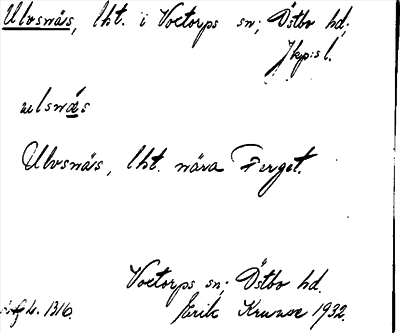 Ulvsnäs, lht. i Voctorps sn; Östbo hd;
Jkp:s l.
ulsnä́s
Ulvsnäs, lht. nära Ferget.
Voctorps sn; Östbo hd.
1316. Erik Kruuse 1932.